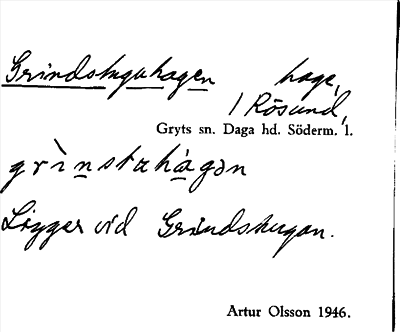 Grindstuguhagen hage,
/ Rösund,
Gryts sn. Daga hd. Söderm. l.
grìnstahágən
Ligger vid Grindstugan.
Artur Olsson 1946.